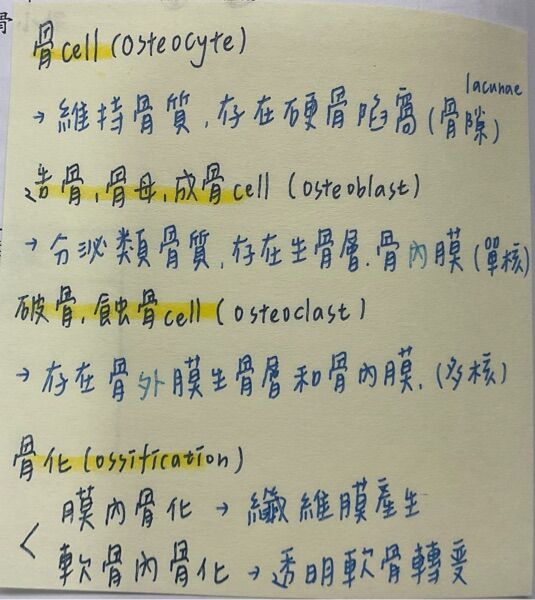 骨
骨cell (osteocyte)
lacunae
→ 維持骨質,存在硬骨陷窩(骨隙)
造骨,骨母,成骨cell (osteoblast)
→ 分泌類骨質,存在生骨層.骨內膜(單核)
破骨,蝕骨cell (osteoclast)
→ 存在骨外膜生骨層和骨內膜.(多核)
骨化(ossification)
膜內骨化 → 纖維膜產生
< 軟骨內骨化 → 透明軟骨轉變